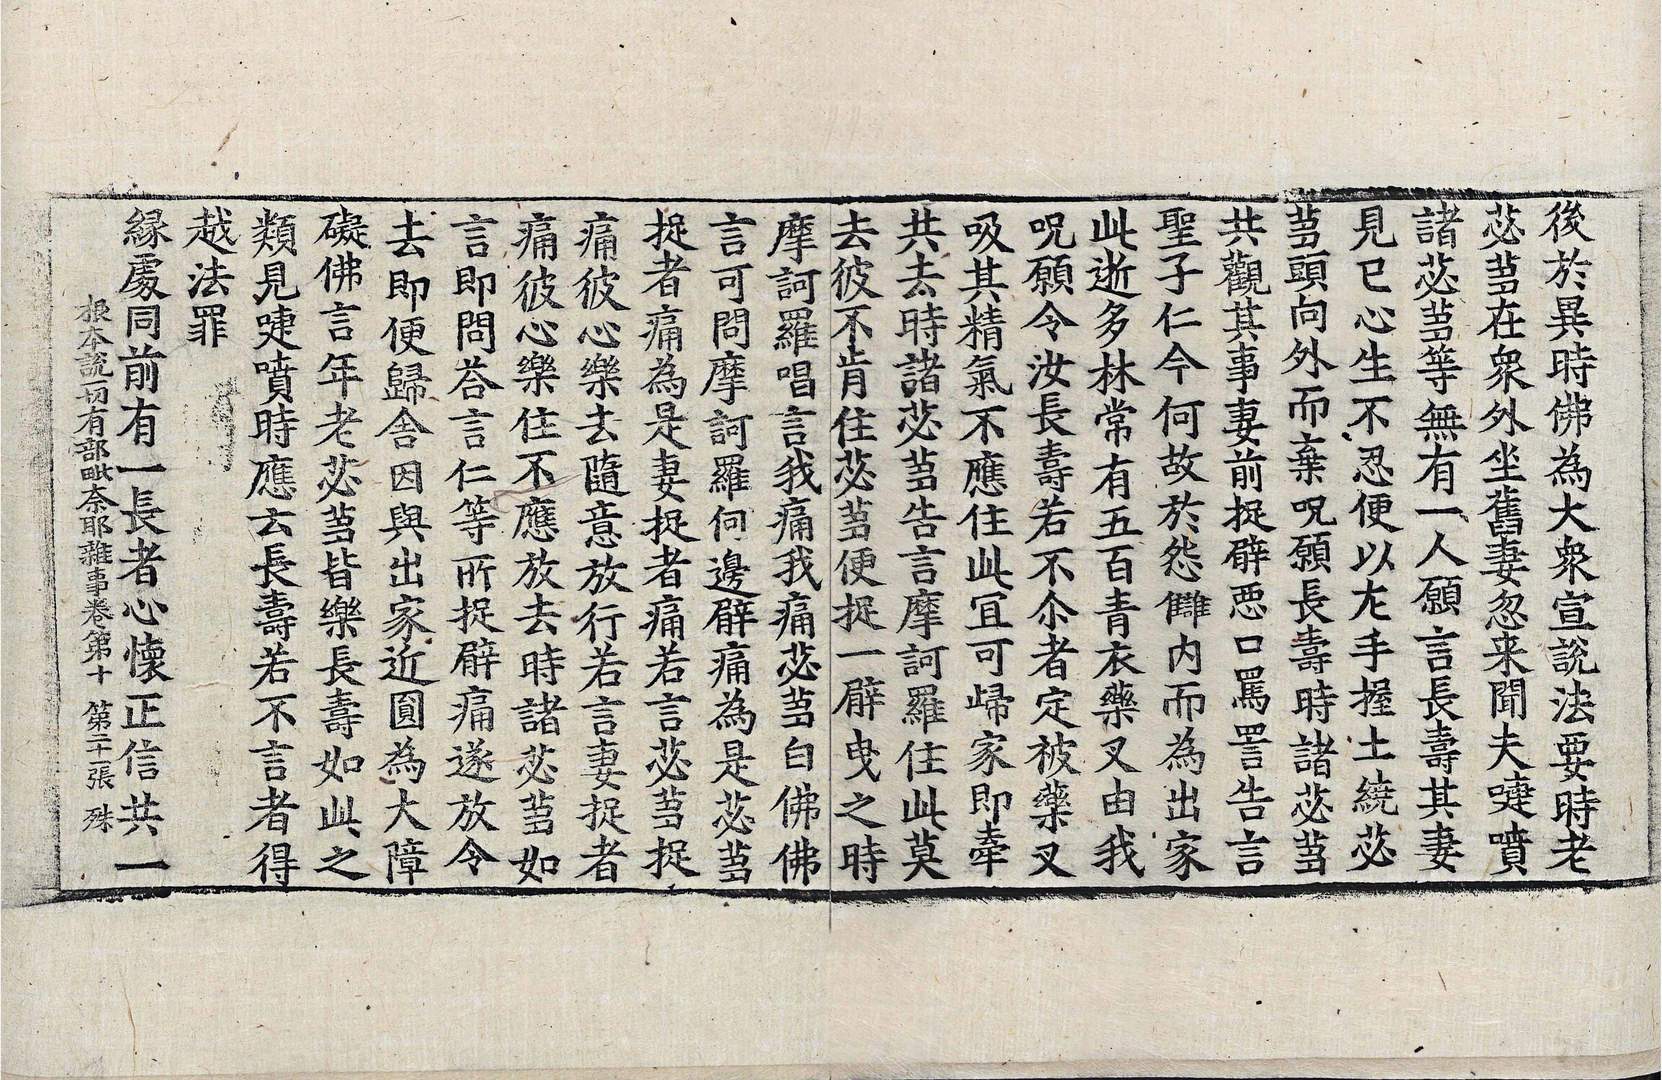 後於異時佛為大衆宣說法要時老
苾蒭在衆外坐舊妻忽来聞夫嚏噴
諸苾蒭等無有一人願言長壽其妻
見已心生不忍便以左手握土繞苾
蒭頭向外而棄呪願長壽時諸苾蒭
共觀其事妻前捉臂惡口罵詈告言
聖子仁今何故於怨讎内而為出家
此逝多林常有五百青衣藥叉由我
呪願令汝長壽若不尒者定被藥叉
吸其精氣不應住此宜可歸家即牽
共去時諸苾蒭告言摩訶羅住此莫
去彼不肯住苾蒭便捉一臂曳之時
摩訶羅唱言我痛我痛苾蒭白佛佛
言可問摩訶羅何邊臂痛為是苾蒭
捉者痛為是妻捉者痛若言苾蒭捉
痛彼心樂去隨意放行若言妻捉者
痛彼心樂住不應放去時諸苾蒭如
言即問荅言仁等所捉臂痛遂放令
去即便歸舍因與出家近圓為大障
礙佛言年老苾蒭皆樂長壽如此之
類見嚏噴時應云長壽若不言者得
越法罪
縁處同前有一長者心懷正信共一
根本說一切有部毗奈耶雜事卷第十 第二十二張 殊